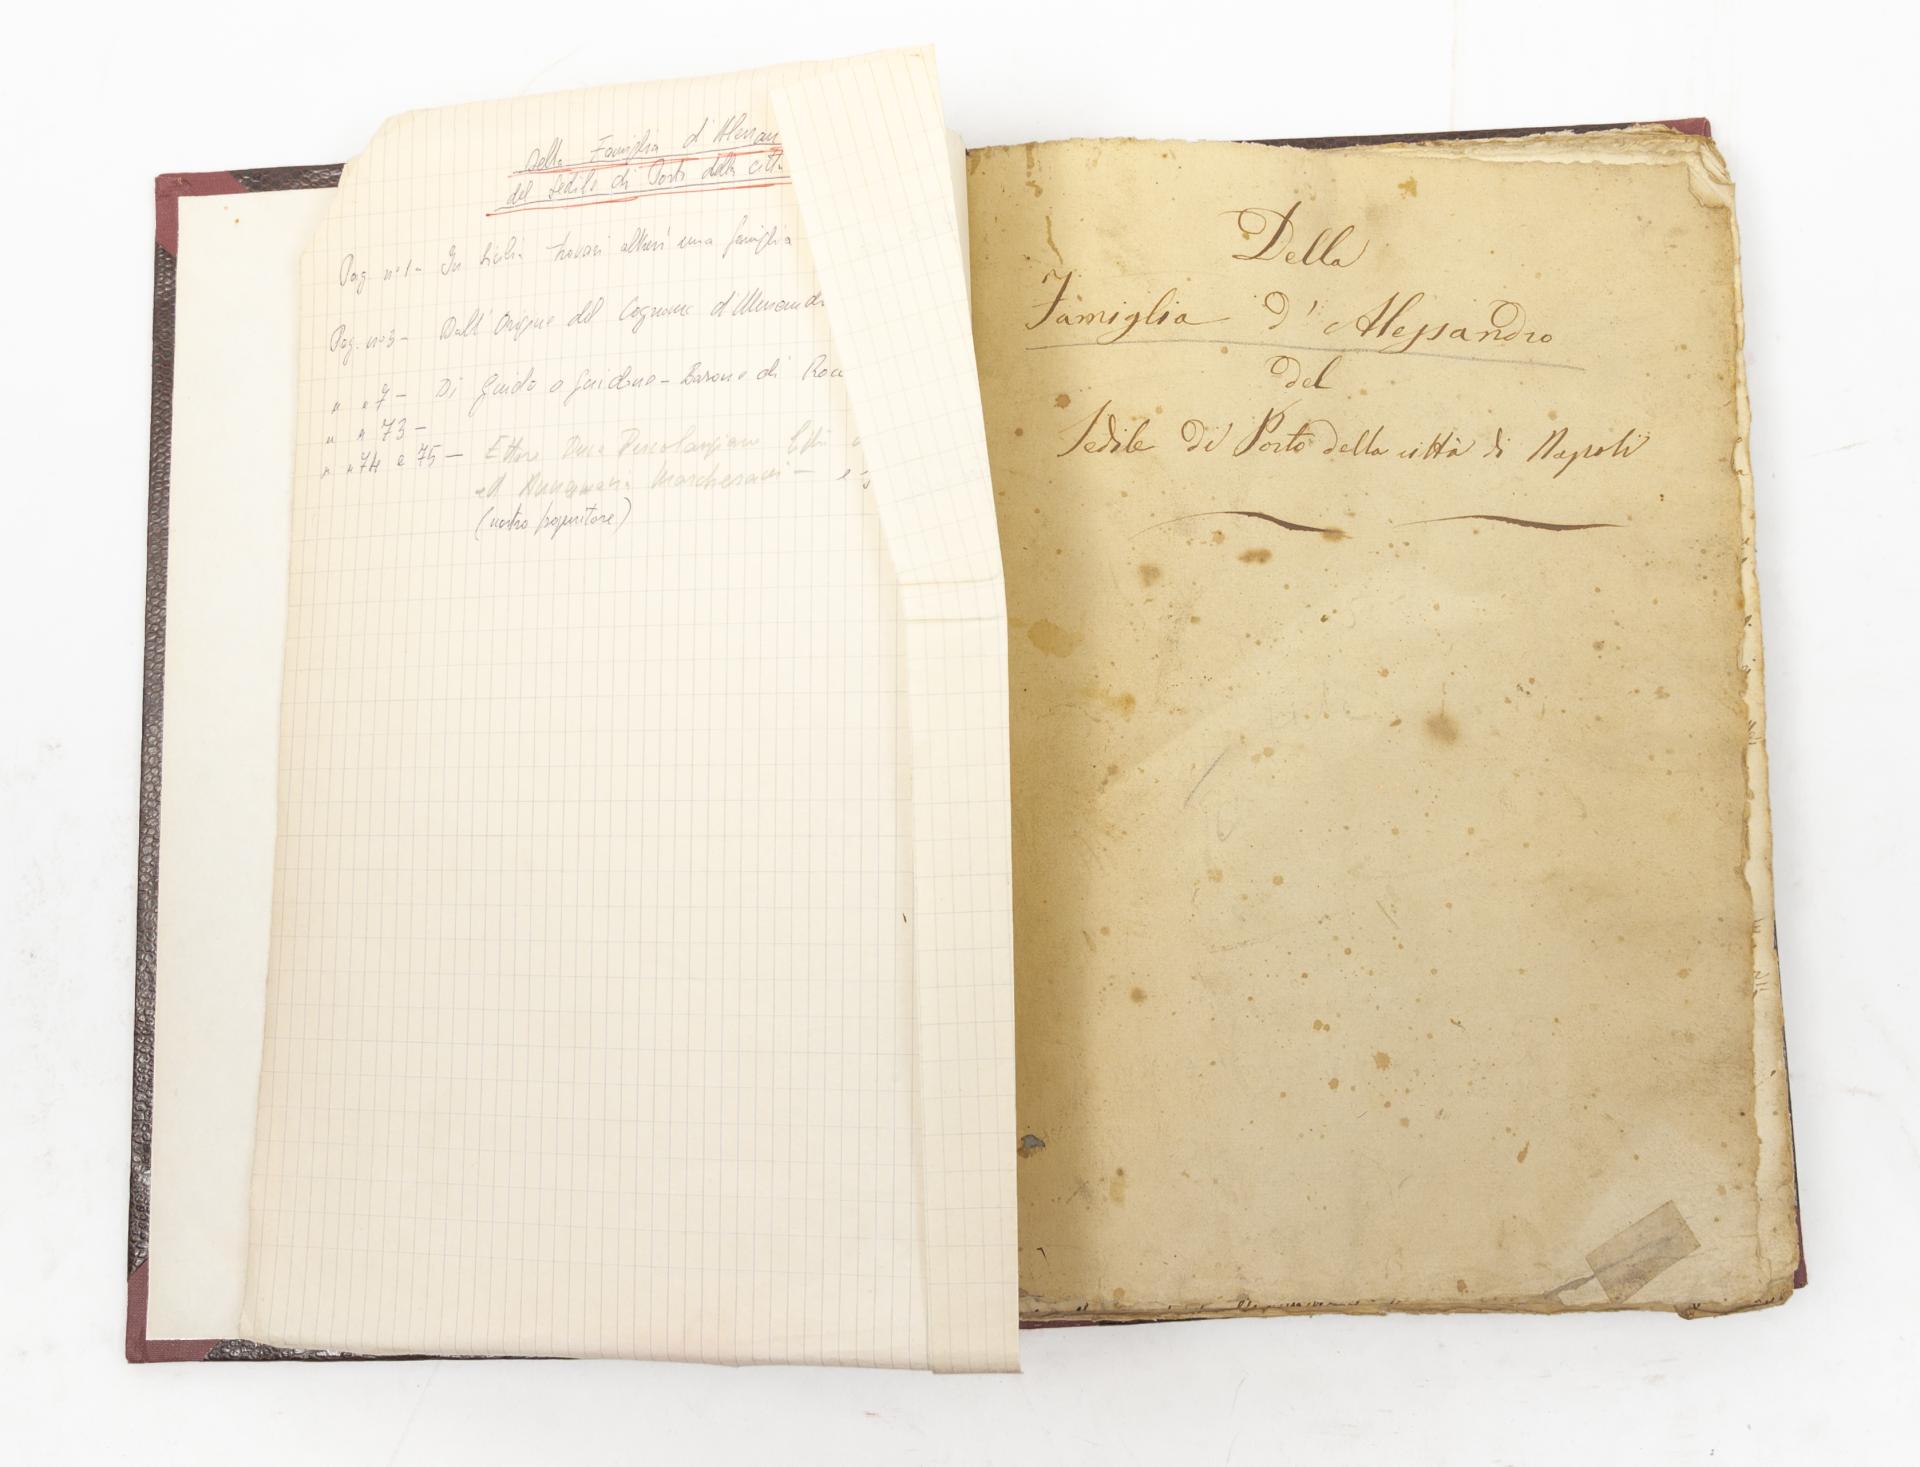 Della Famiglia d'Alessan
del Sedile di Porto della città
Pag. n° 1 - In Sicilia trovasi altresì una famiglia
Pag. n° 3 - Dall'Origine del Cognome d'Alessandr
" " 7 - Di Guido o Guidone - Barone di Rocc
" " 73 -
" " 74 e 75 - Ettore Duca Pescolanciano
ed Annamaria
(nostro progenitore)
Della
Famiglia d'Alessandro
del
Sedile di Porto della città di Napoli